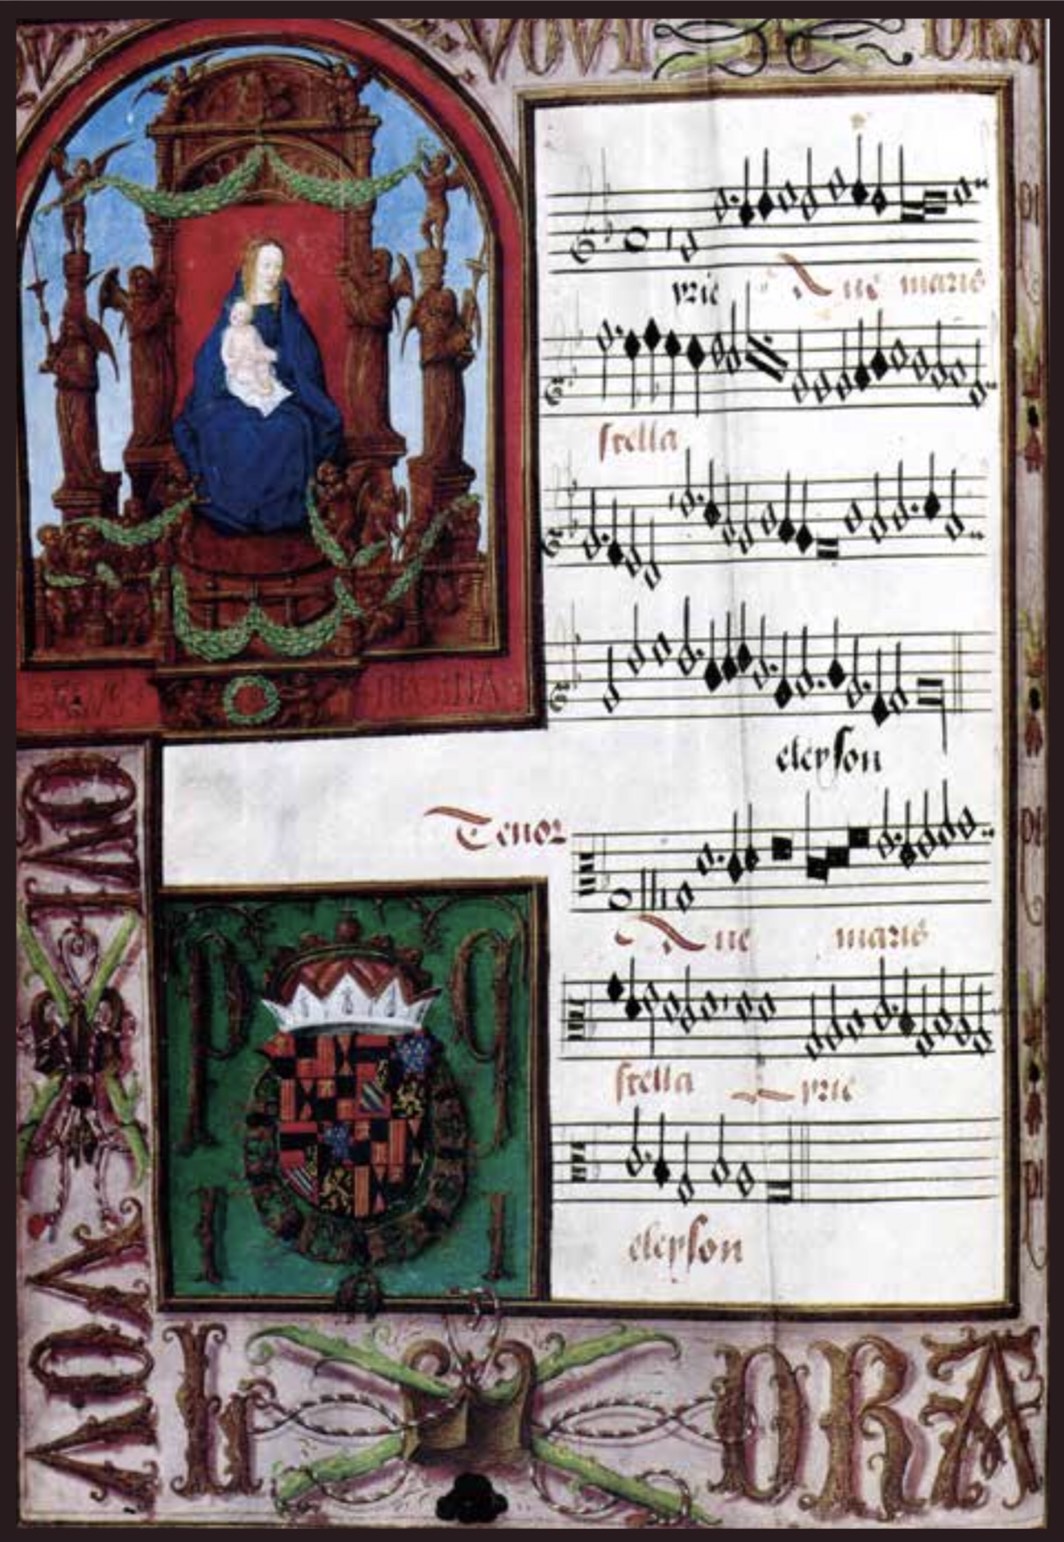 VOVI
ORA
yrie Aue maris
stella
eleyson
Tenor
Aue maris
stella kyrie
eleyson
VOVI
ORA